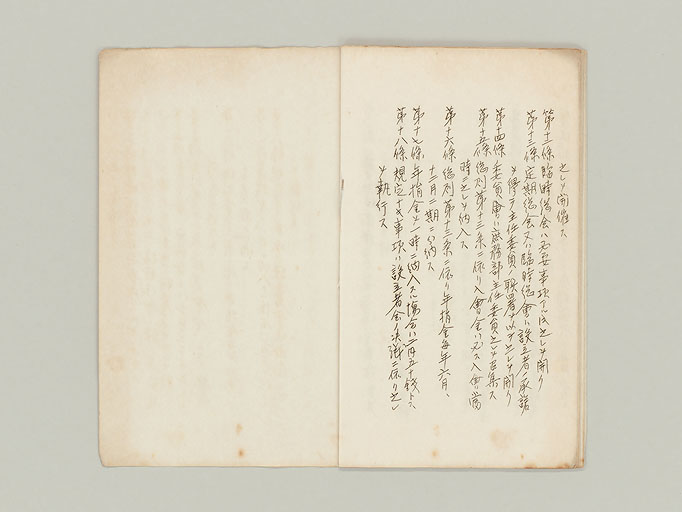 之レヲ開催ス
第十二條臨時總会ハ必要事項アル時之レヲ開ク
第十三條定期總会又ハ臨時總會ハ設立者ノ承諾
ヲ得テ主任委員ノ職署ヲ以テ之レヲ開ク
第十四條 委員會ハ庶務部主任委員之レヲ召集ス
第十五條總則第十二条ニ依リ入會金ハ必ス入會當
時ニ之レヲ納入ス
第十六條 總則第十三条ニ依リ年捐金毎年六月、
十二月二期ニ分納ス
第十七條 年捐金ヲ一時ニ納入スル場合ハ二円五十銭トス、
第十八條 規定ナキ事項ハ設立者会ノ決議ニ依リ之レ
ヲ執行ス